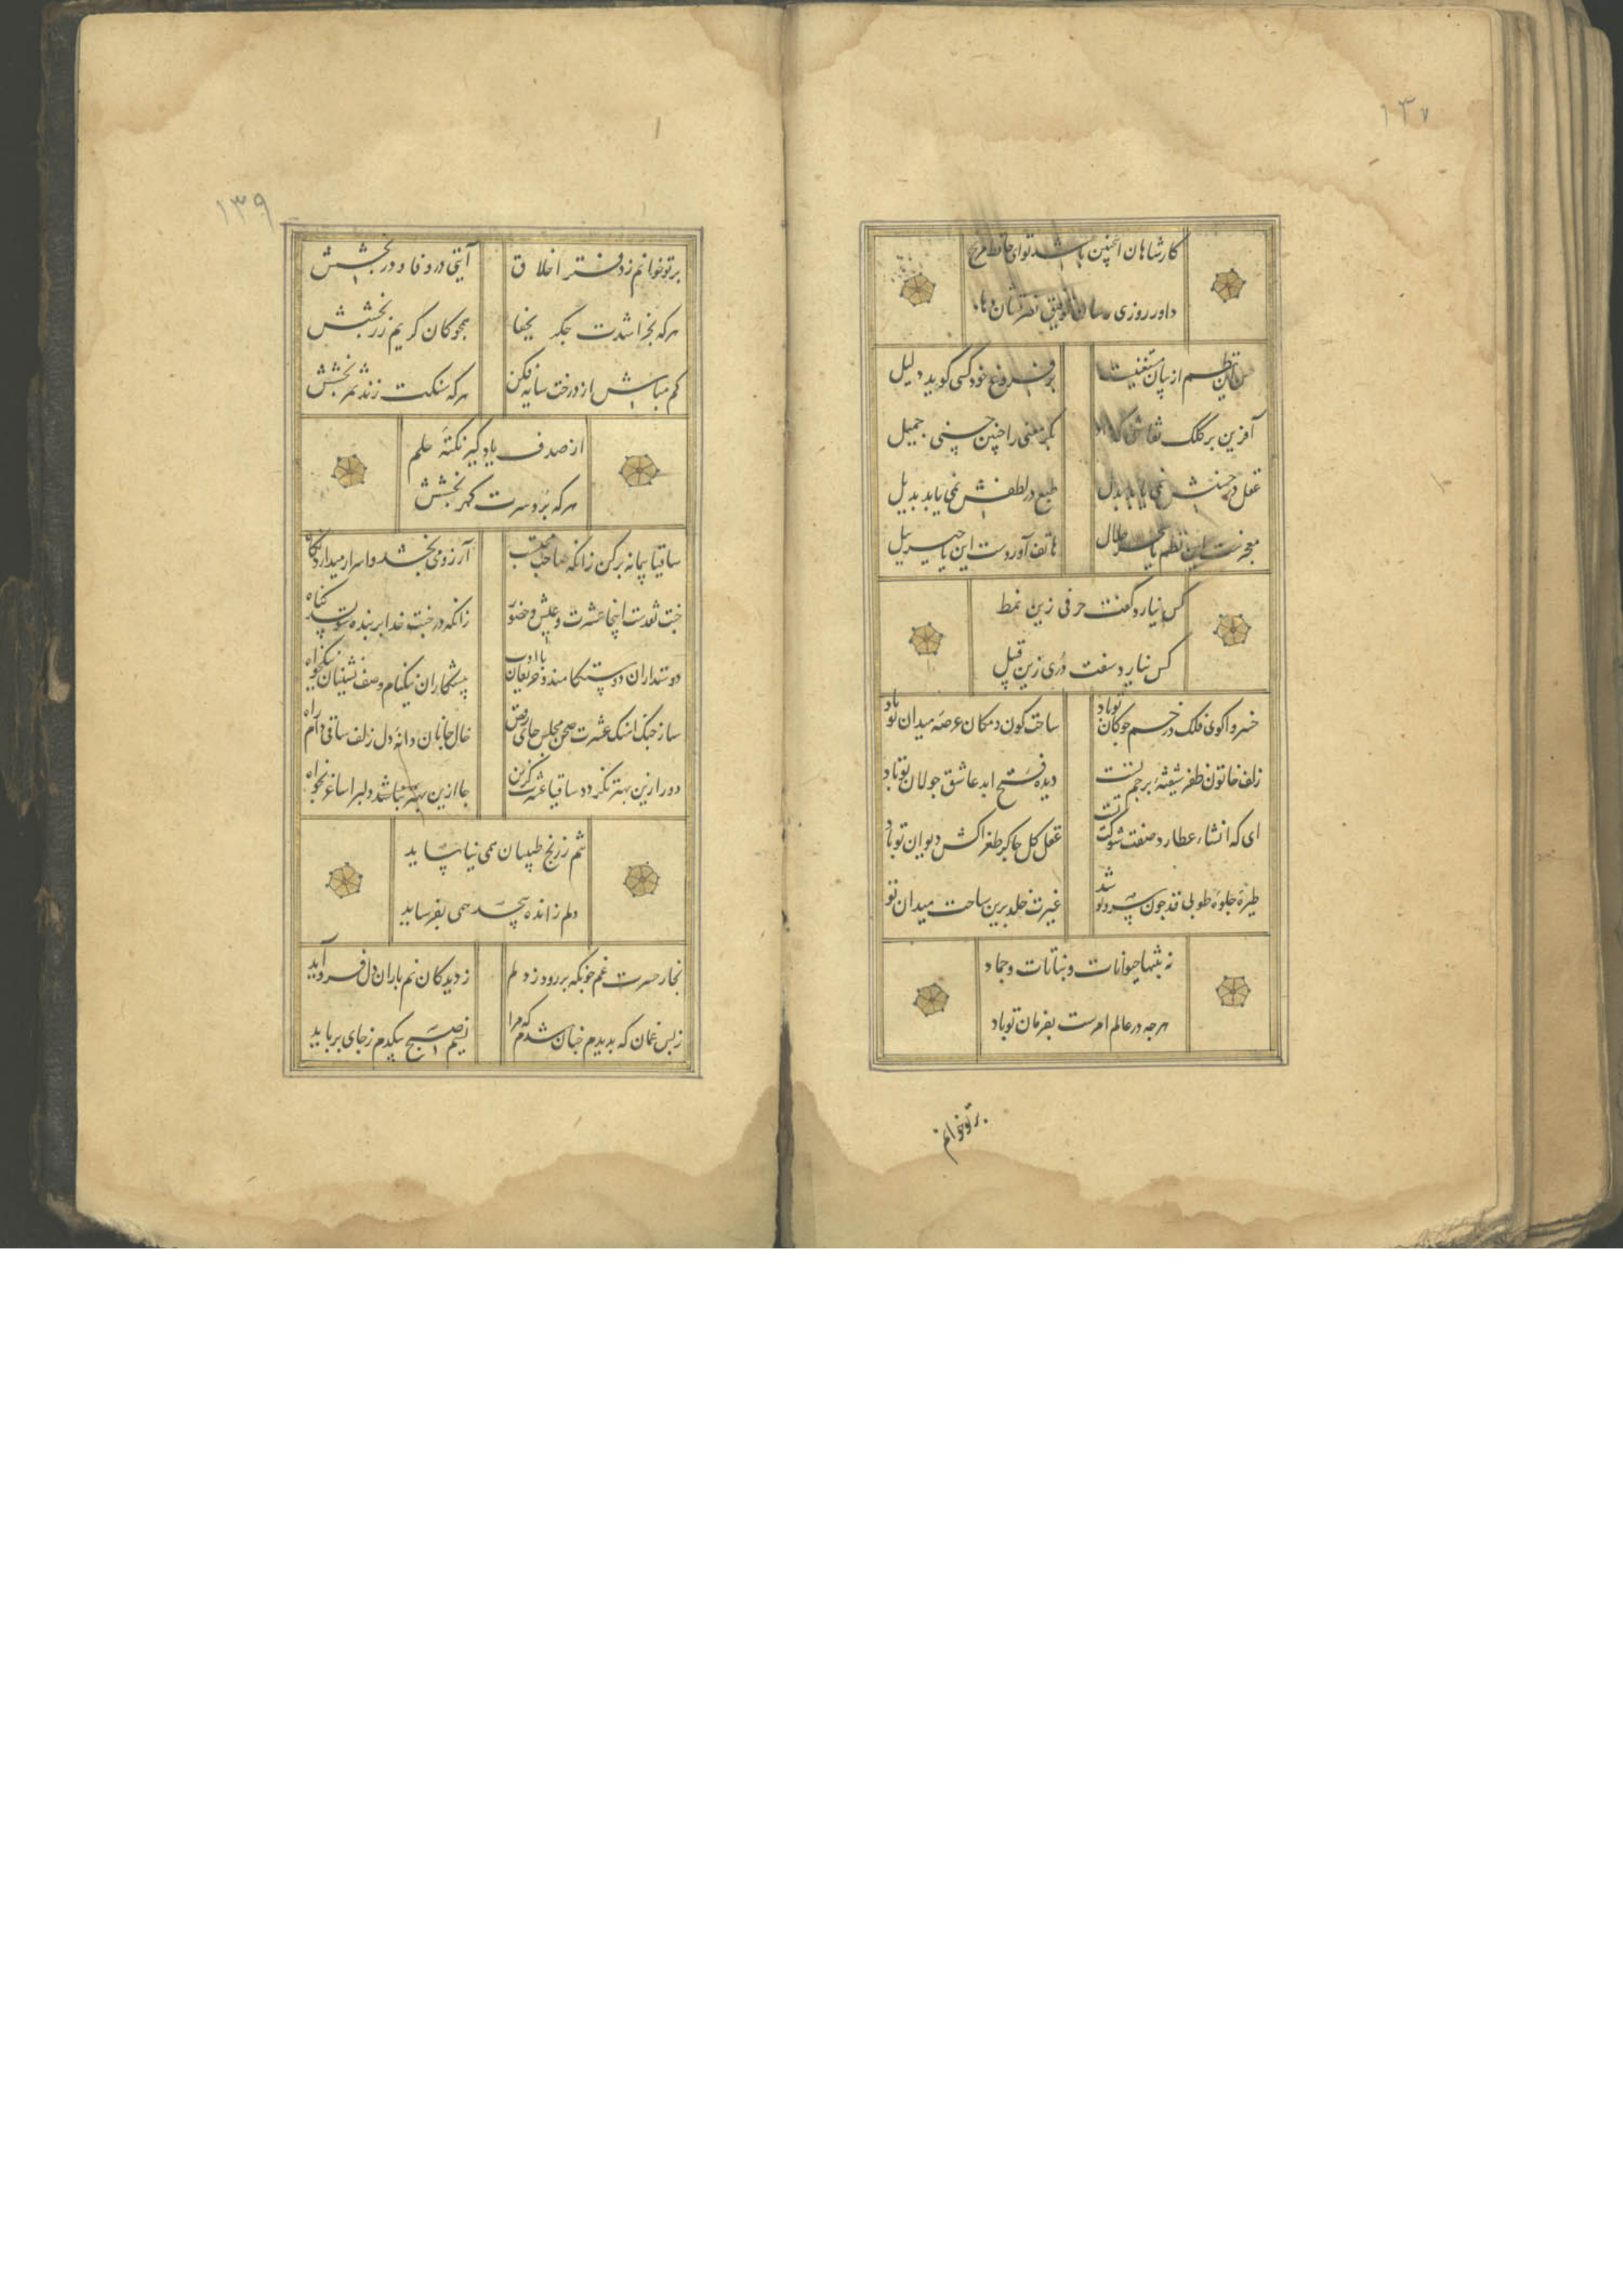 ۱۳۷
کارشاهان اینچنین باشد تو ای حافظ مرنج
داور روزی رسان توفیق نصرتشان دهاد
حسن این نظم از بیان مستغنیست
بر فروغ خود کسی گوید دلیل
آفرین بر کلک نقاشی که داد
بکر معنی را چنین حسنی جمیل
عقل در حسنش نمی یابد بدل
طبع در لطفش نمی یابد بدیل
معجزست این نظم یا سحر حلال
هاتف آوردست این یا جبرییل
کس نیارد گفت حرفی زین نمط
کس نیارد سفت دُری زین قبیل
خسروا گوی فلک در خم چوکان تو باد
ساحت کون و مکان عرصهٔ میدان تو باد
زلف خاتون ظفر شیفتهٔ پرچم تست
دیده فتح ابد عاشق جولان تو باد
ای که انشاء عطارد صفت شوکت تست
عقل کل چاکر طغراکش دیوان تو باد
طیرهٔ جلوهٔ طوبی قد چون سرو تو شد
غیرت خلد برین ساحت میدان تو
نه بتنها حیوانات و نباتات و جماد
هرچه در عالم امرست بفرمان تو باد
بر تو خوانم
۱۳۹
بر تو خوانم ز دفتر اخلاق
آیتی در وفا و در بخشش
هر که بخراشدت جگر بجفا
همجو کان کریم زر بخشش
کم مباش از درخت سایه فکن
هر که سنکت زند ثمر بخشش
از صدف یاد کیر نکتهٔ حلم
هر که بُرد سرت کهر بخشش
ساقیا پیمانه پر کن زانکه صاحب مجلست
آرزو می بخشد و اسرار میدارد نکاه
جنت نقدست اینجا عشرت و عیش و حضور
زانکه در جنت خدا بر بنده ننویسد کناه
دوستداران دوستکامند و حریفان با ادب
پیشکاران نیکنام و صف نشینان نیکخواه
ساز چنک آهنک عشرت صحن مجلس جای رقص
خال جانان دانهٔ دل زلف ساقی دام راه
دور ازین بهتر نکردد ساقیا عشرت کزین
جا ازین بهتر نباشد دلبرا ساغر بخواه
تنم ز رنج طبیبان نمی نیاساید
دلم ز انده بیحد همی بفرساید
بخار حسرت غم خونکه بر رود ز دلم
ز دیدکان نم باران دل فرو آید
ز بس غمان که بدیدم چنان شدم که مرا
نسیم صبح بیکدم ز جای برباید